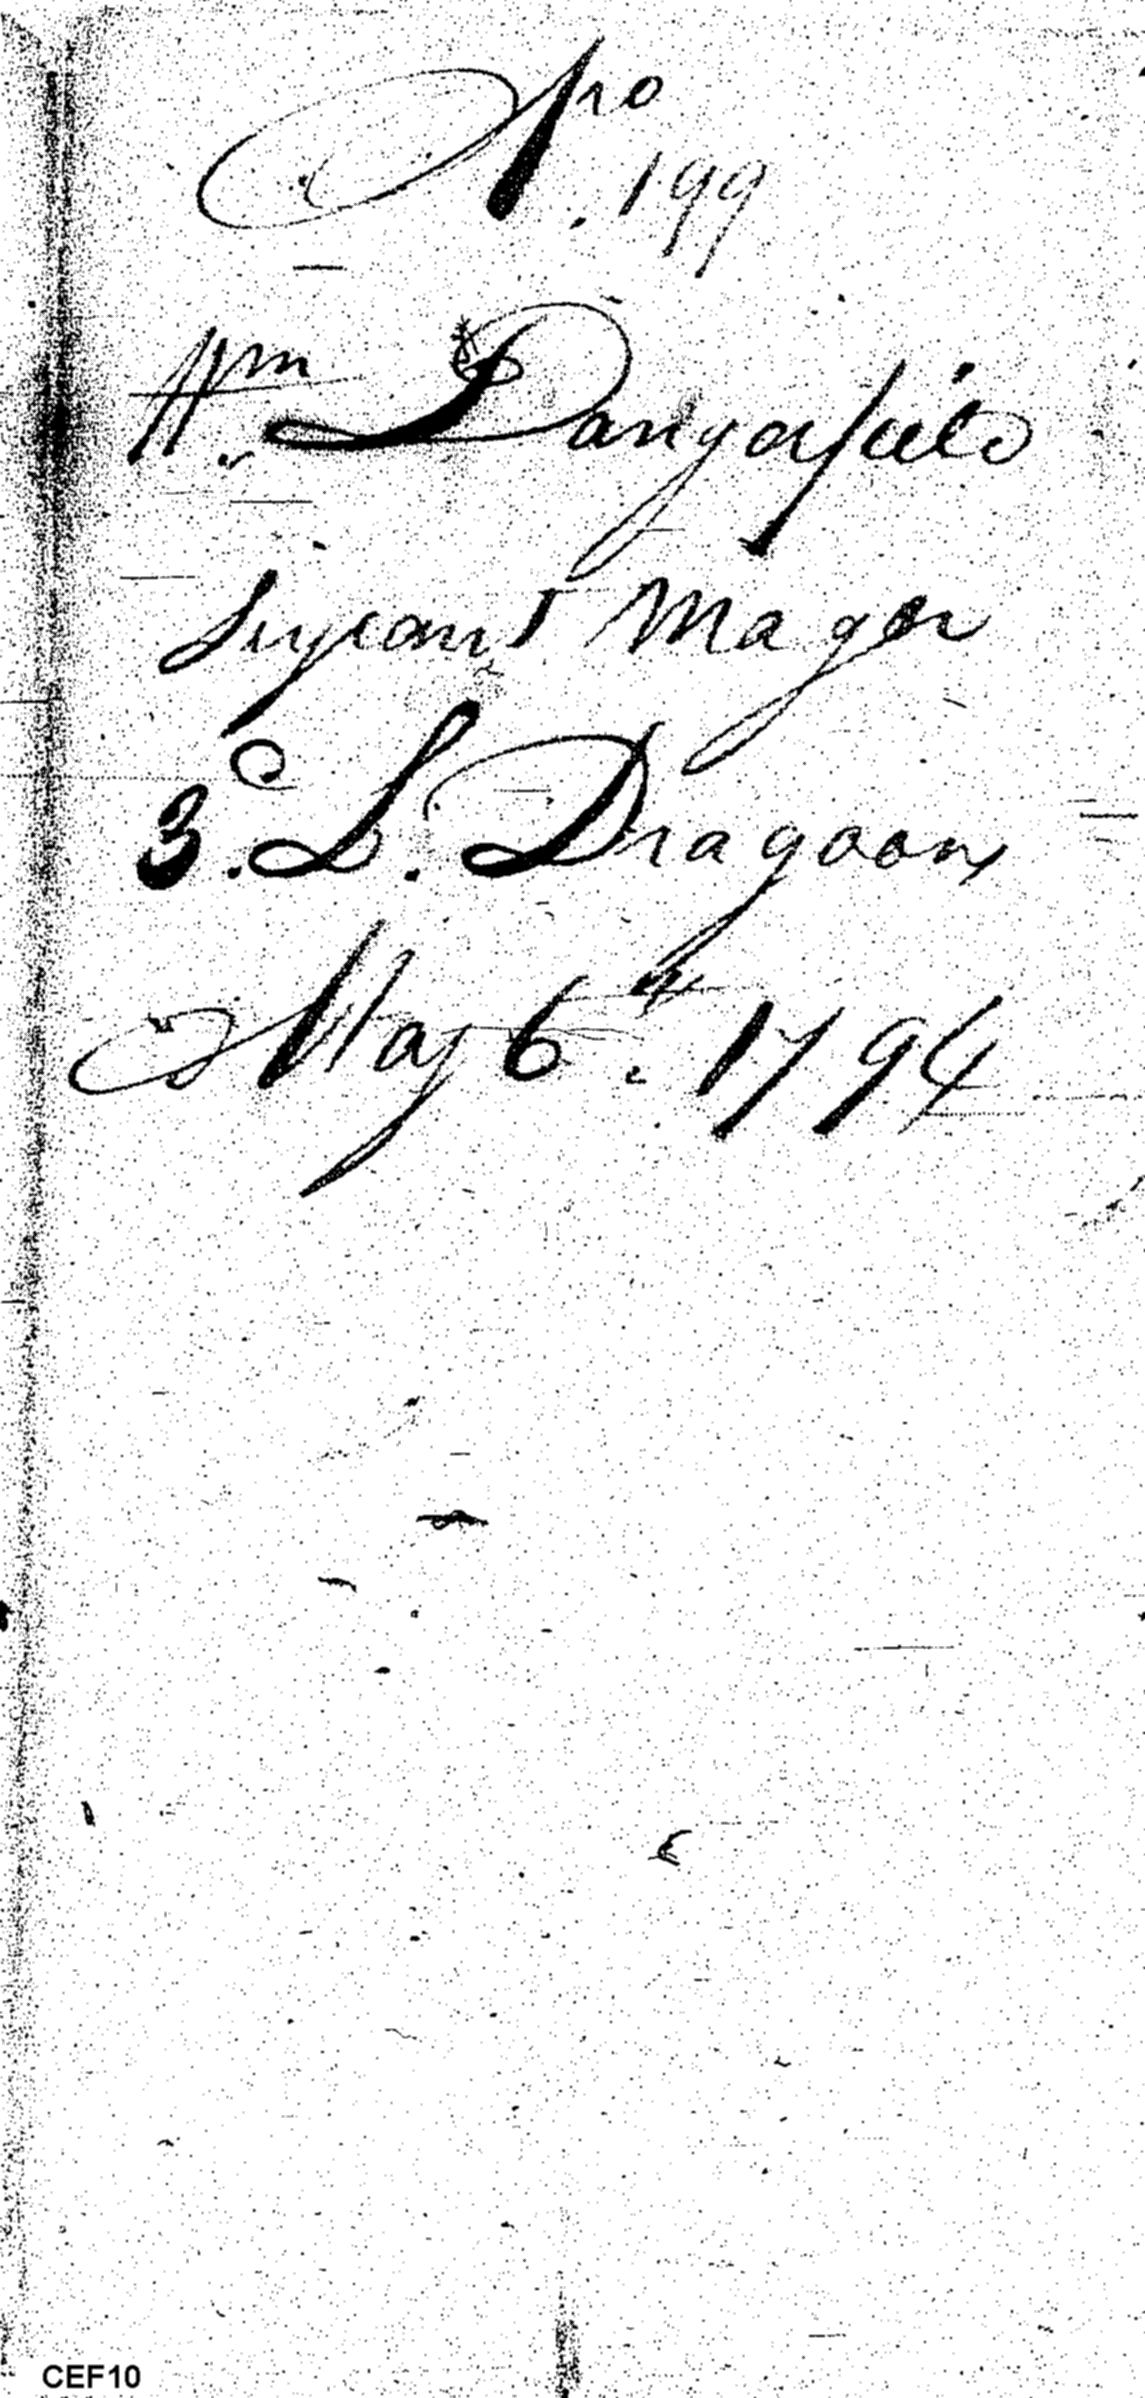 No
. 199
Wm. Dangerfield
Serjeant Mager
3d. L. Dragoons
May 6th. 1794
CEF10